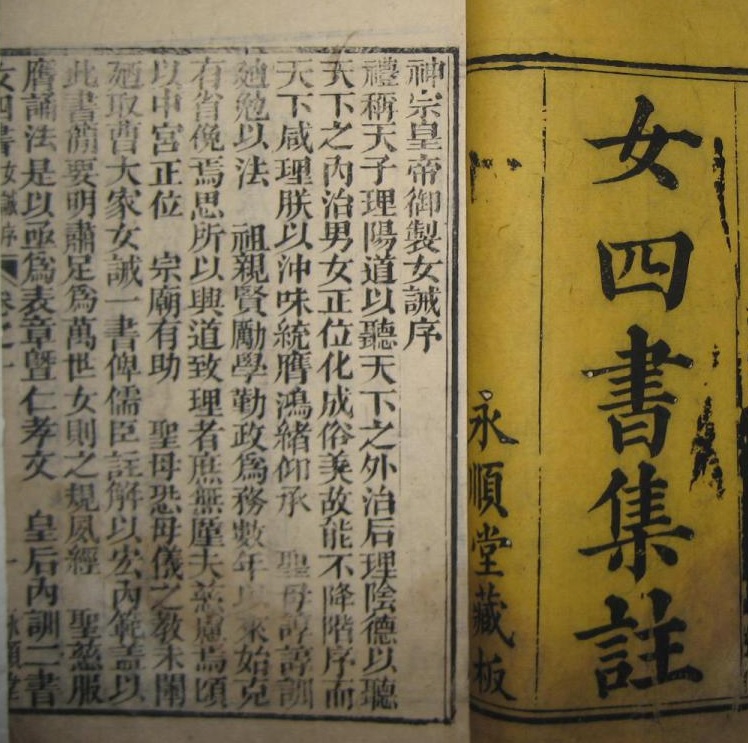 女四書集註
永順堂藏板
神宗皇帝御製女誡序
禮稱天子理陽道以聽天下之外治后理陰德以聽
天下之內治男女正位化成俗美故能不降階序而
天下咸理朕以沖味統膺鴻緒仰承 聖母諄諄訓
廸勉以法 祖親賢勵學勤政為務數年以來始克
有省俛焉思所以興道致理者庶無厪夫慈慮焉頃
以中宮正位 宗廟有助 聖母恐母儀之教未闡
廼取曹大家女誡一書俾儒臣註解以宏內範蓋以
此書簡要明肅足為萬世女則之規凤經 聖慈服
膺誦法是以亟為表章曁仁孝文 皇后內訓二書
女四書 女誡序 卷之一 一 永順堂